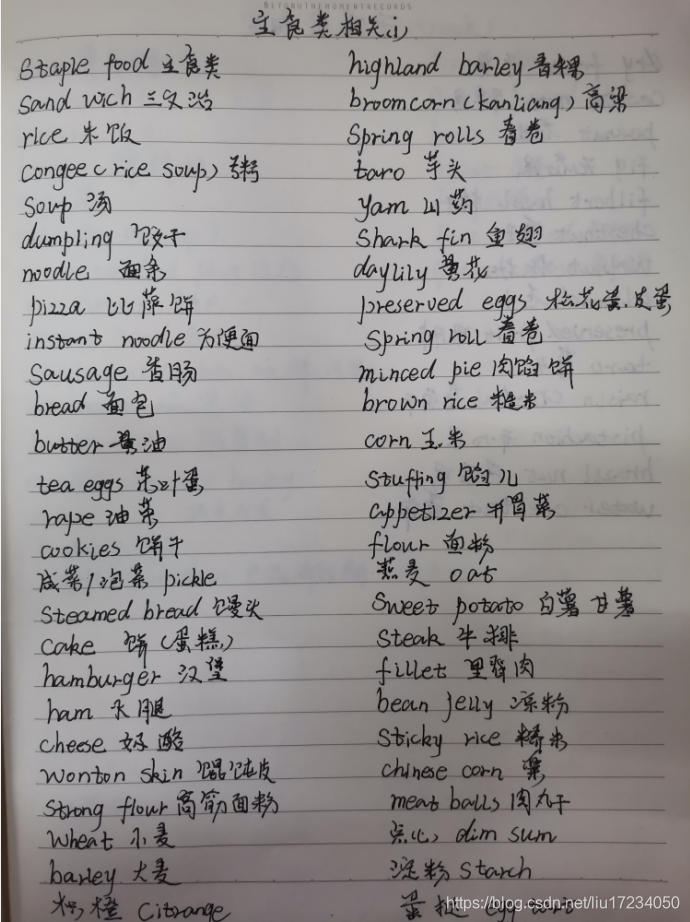 BEYONDTHEMOMENTRECORDS
主食类相关(1)
Staple food 主食类
sand wich 三文治
rice 米饭
congee (rice soup) 粥
soup 汤
dumpling 饺子
noodle 面条
pizza 比萨饼
instant noodle 方便面
sausage 香肠
bread 面包
butter 黄油
tea eggs 茶叶蛋
rape 油菜
cookies 饼干
咸菜/泡菜 pickle
steamed bread 馒头
cake 饼(蛋糕)
hamburger 汉堡
ham 火腿
cheese 奶酪
wonton skin 馄饨皮
strong flour 高筋面粉
wheat 小麦
barley 大麦
枳橙 Citrange
highland barley 青稞
broomcorn (kanliang) 高粱
Spring rolls 春卷
taro 芋头
yam 山药
Shark fin 鱼翅
daylily 黄花
preserved eggs 松花蛋.皮蛋
Spring roll 春卷
minced pie 肉馅饼
brown rice 糙米
corn 玉米
stuffing 馅儿
appetizer 开胃菜
flour 面粉
燕麦 oat
Sweet potato 白薯 甘薯
steak 牛排
fillet 里脊肉
bean jelly 凉粉
Sticky rice 糯米
chinese corn 粟
meat balls 肉丸子
点心 dim sum
淀粉 starch
蛋挞 egg
https://blog.csdn.net/liu17234050